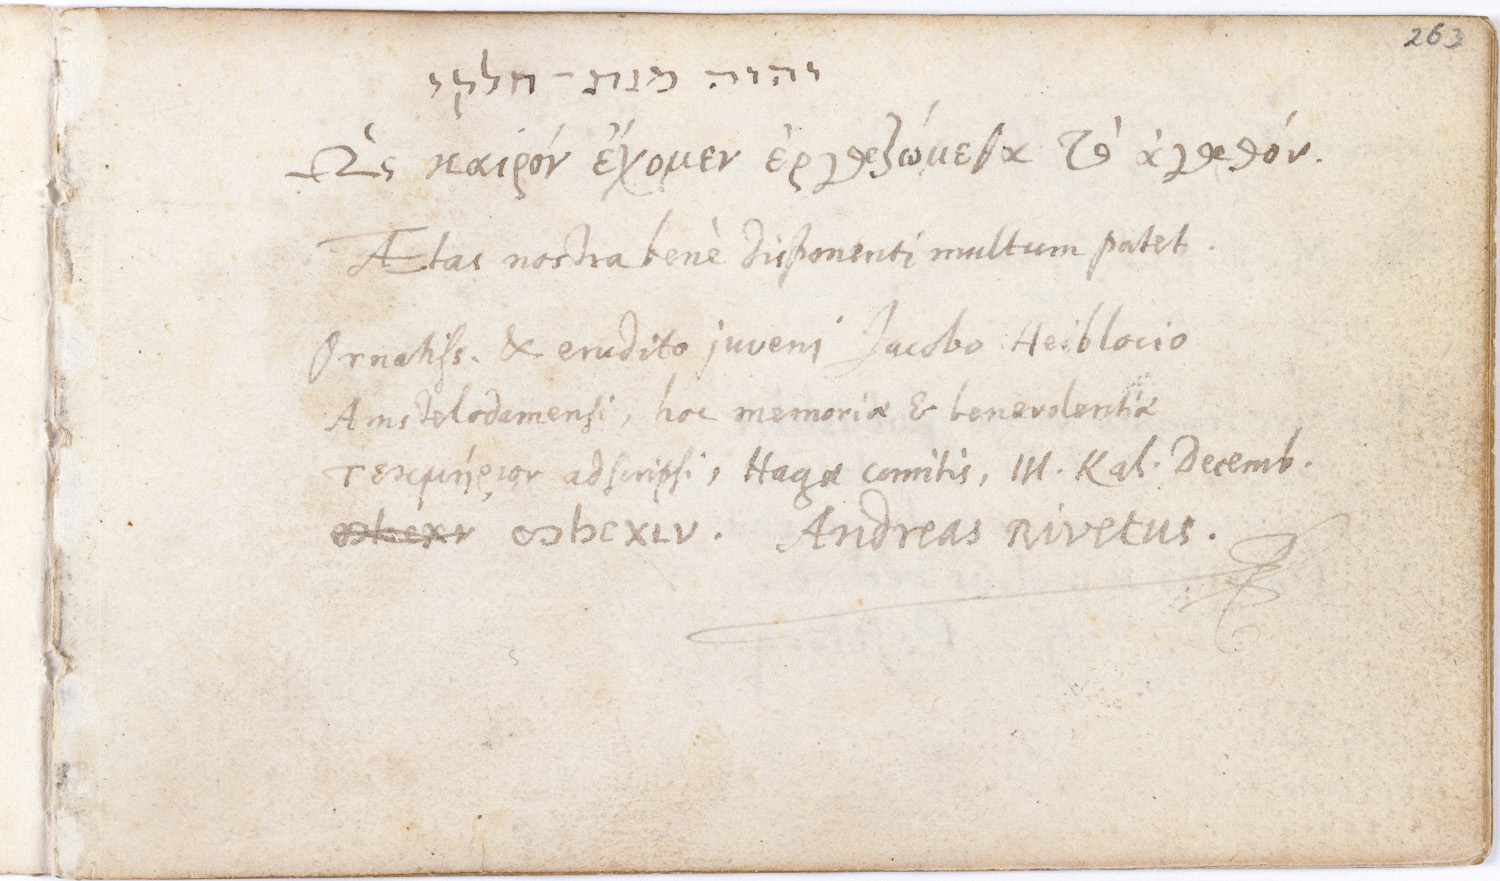 263
יהוה מנת-חלקי
Ὡς καιρόν ἔχομεν ἐργαζώμεθα τὸ ἀγαθόν.
Ætas nostra benè disponenti multum patet.
Ornatiss. & erudito juveni Jacobo Heiblocio
Amstelodamensi, hoc memoriæ & benevolentiæ
τεκμήριον adscripsi, Hagæ comitis, III. Kal. Decemb.
ꝏbcxlv. Andreas Rivetus.